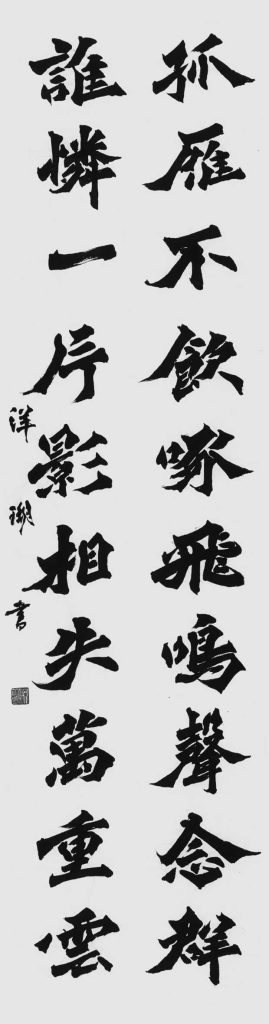 孤雁不飲啄飛鳴聲念群
誰憐一片影相失萬重雲
洋 書